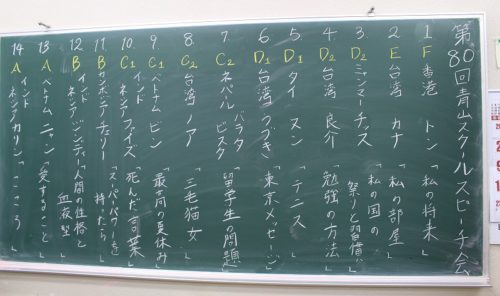 第80回青山スクールスピーチ会
1. F 香港 トン 「私の将来」
2. E 台湾 カナ 「私の部屋」
3. D2 ミャンマー チャス 「私の国の祭りと習慣」
4. D2 台湾 良介 「勉強の方法」
5. D1 タイ スン 「テニス」
6. D1 台湾 つづき 「東京メッセージ」
7. C2 ネパール バラタ ビスタ 「留学生の問題」
8. C2 台湾 ノア 「三毛猫女」
9. C1 ベトナム ビン 「最高の夏休み」
10. C1 インドネシア ファイズ 「死んだ言葉」
11. B カンボジア チェリー 「スーパーパワーを持ったら」
12. B インドネシア 「人間の性格と血液型」
13. A ベトナム ニャン 「愛すること」
14. A インドネシア カリン 「こころ」